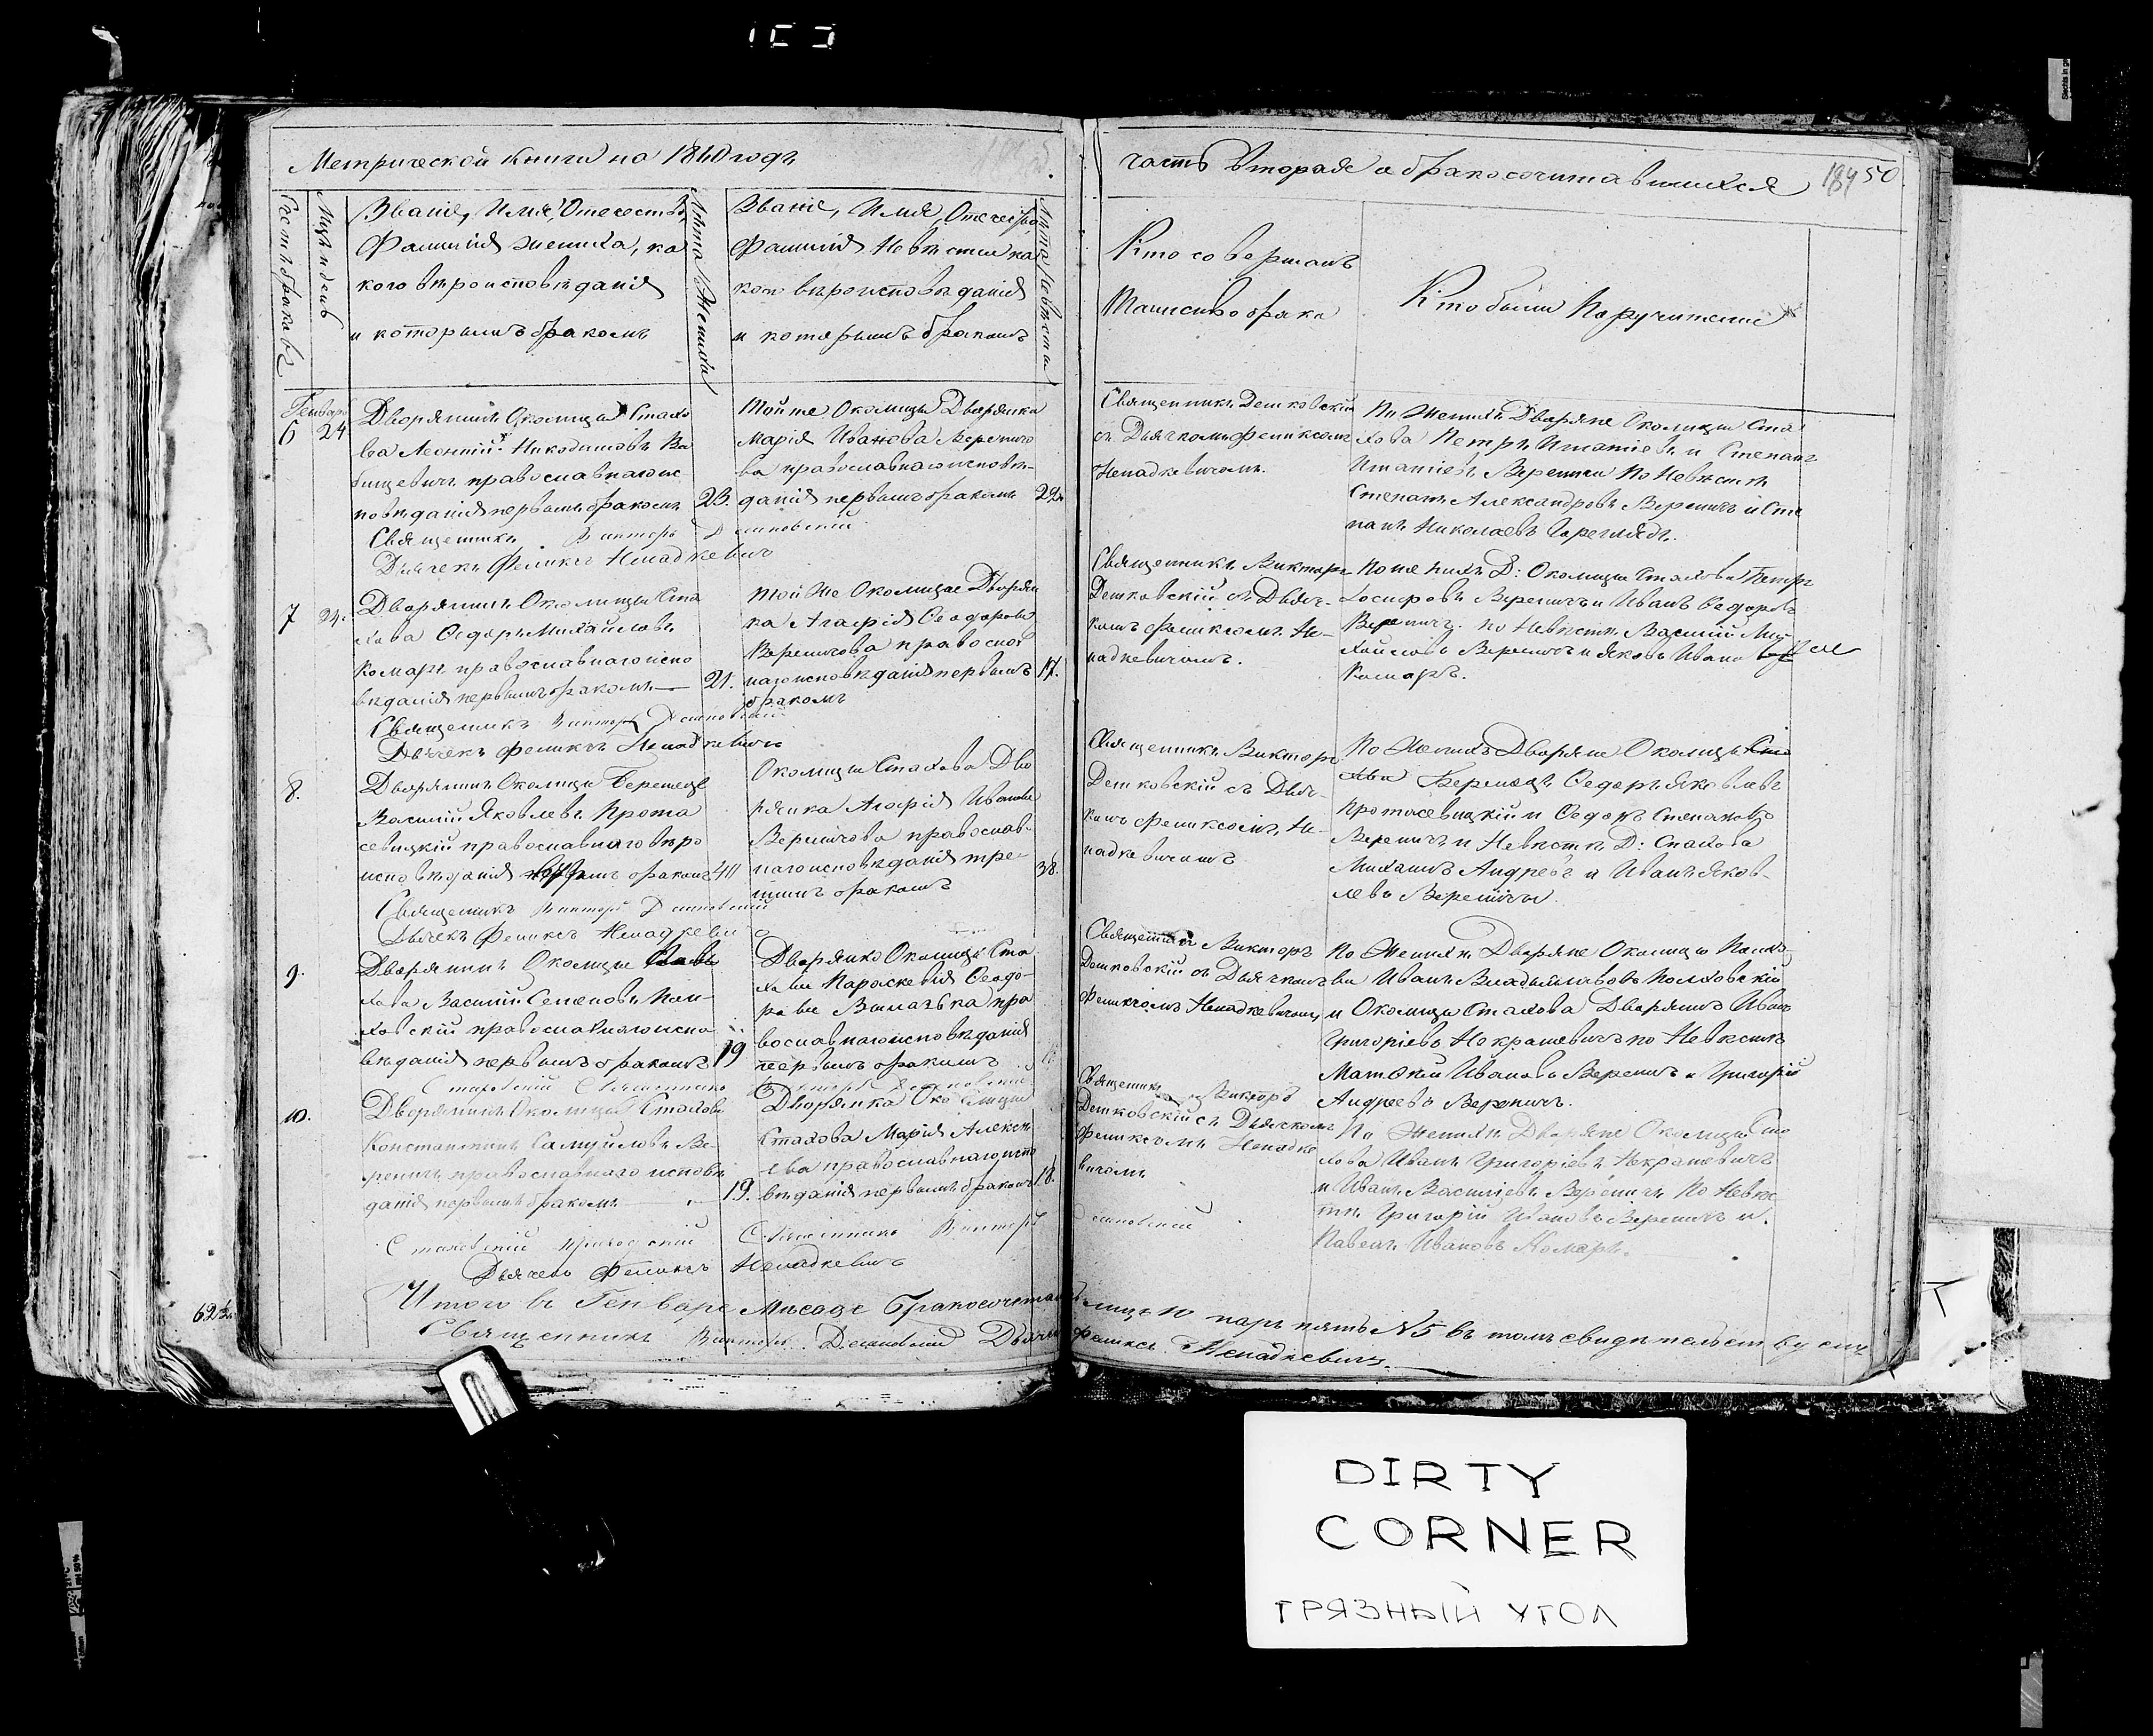 Метрической Книги на 1860 годъ
часть вторая о бракосочитавшихся
184 50
Счетъ браковъ
Мцъ и день
Званіе, Имя, Отечество
Фамилія жениха, ка
кого вѣроисповѣданія
и которымъ бракомъ
Лѣта Жениха
Званіе, Имя, Отечество
Фамилія Невѣсты ка
кого вѣроисповѣданія
и которымъ бракомъ
Лѣта Невѣсты
Кто совершалъ
Таинство брака
Кто были Поручители
Генварь
6 24
Дворянинъ Околицы Стахо
ва Леонтій Никодимовъ Ва
бищевичъ православнаго ис
повѣданія первымъ бракомъ
23.
Тойже Околицы Дворянка
Марія Иванова Вереничо
ва православнаго исповѣ-
данія первымъ бракомъ
22
Священникъ Дешковскій
съ Дьячкомъ Феликсомъ
Ненадкевичемъ.
По Женихѣ Дворяне Околицы Ста
хова Петръ Игнатіевъ и Степанъ
Игнатіевъ Вереничи По Невѣстѣ
Степанъ Александровъ Вереничъ и Сте
панъ Николаевъ
Священникъ Викторъ Дешковскій
Дьячекъ Феликсъ Ненадкевичъ
7 24.
Дворянинъ Околицы Ста
хова Ѳеодоръ Михайловъ
Комаръ православнаго испо
вѣданія первымъ бракомъ
21.
Тойже Околицы Дворян
ка Агафія Ѳеодорова
Вереничова православ
наго исповѣданія первымъ
бракомъ
17.
Священникъ Викторъ
Дешковскій съ Дьяч-
комъ Феликсомъ Не-
надкевичемъ.
По женихѣ Д: Околицы Стахова Петръ
Іосифовъ Вереничъ и Иванъ Ѳедоровъ
Вереничъ. по Невѣстѣ Василій Ми-
хайловъ Вереничъ и Яковъ Ивано
Комаръ.
Священникъ Викторъ Дешковскій
Дьячекъ Феликсъ Ненадкевичъ
8.
Дворянинъ Околицы Берешце
Василій Яковлевъ Прота
севицкій православнаго вѣро
исповѣданія бракомъ
Околицы Стахова Дво
рянка Агафія Иванова
Вереничова православ-
наго исповѣданія тре-
тимъ бракомъ
38.
Священникъ Викторъ
Дешковскій съ Дьяч-
комъ Феликсомъ Не-
надкевичемъ
По Женихѣ Дворяне Околицы
Ѳедоръ Яковлевъ
Протасевицкій и Ѳедоръ Степановъ
Вереничъ и Невѣстѣ Д: Стахова
Михаилъ Андреевъ и Иванъ Яков-
левъ Вереничи.
Священникъ Викторъ Дешковскій
Дьячекъ Феликсъ Ненадкевичъ
9.
Дворянинъ Околицы
хова Василій Семеновъ Пол-
ховскій православнаго испо
вѣданія первымъ бракомъ
19
Дворянка Околицы Ста
хова Параскевія Ѳеодо-
рова пра
вославнаго исповѣданія
первымъ бракомъ
Священникъ Викторъ
Дешковскій съ Дьячкомъ
Феликсомъ Ненадкевичемъ
По Женихѣ Дворяне Околицы
Иванъ Владыславовъ Полховскій
и Околицы Стахова Дворянинъ Иванъ
Григоріевъ Некрашевичъ по Невѣстѣ
Матѳей Ивановъ Вереничъ и Григорій
Андреевъ Вереничъ.
Священникъ Викторъ Дешковскій
10.
Дворянинъ Околицы Стахова
Константинъ Самуиловъ Ве-
реничъ православнаго исповѣ
данія первымъ бракомъ
19.
Дворянка Околицы
Стахова Марія Алексѣ
ева православнаго испо
вѣданія первымъ бракомъ
18.
Священникъ Викторъ
Дешковскій съ Дьячкомъ
Феликсомъ Ненадке
вичемъ
По Женихѣ Дворяне Околицы Ста
хова Иванъ Григоріевъ Некрашевичъ
и Иванъ Васильевъ Вереничъ По Невѣс
тѣ Григорій Ивановъ Вереничъ и
Павелъ Ивановъ Комаръ.
Священникъ Викторъ Дешковскій
Дьячекъ Феликсъ Ненадкевичъ
Итого въ Генваре Мѣсяце бракосочетав 10 паръ пять №5 въ томъ свидѣтельствуемъ
Священникъ Викторъ Дешковскій Дьячекъ Феликсъ Ненадкевичъ.
DIRTY
CORNER
ГРЯЗНЫЙ УГОЛ